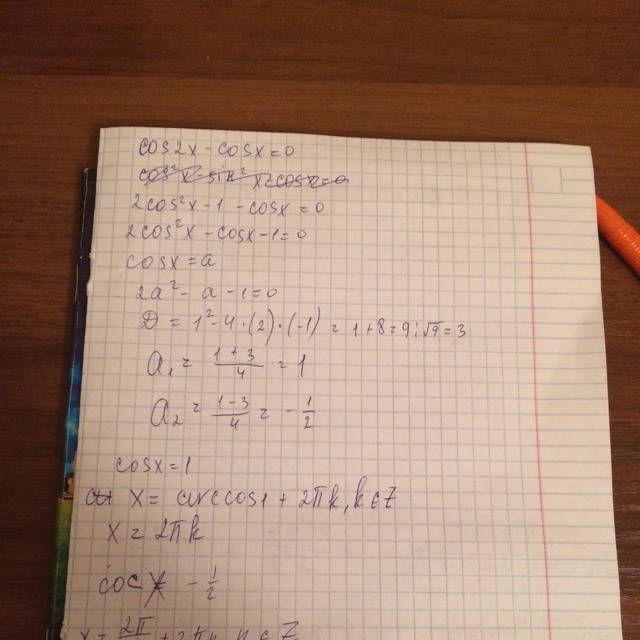 cos2x - cosx = 0
cos²x - sin²x - cosx = 0
2cos²x - 1 - cosx = 0
2cos²x - cosx - 1 = 0
cosx = a
2a² - a - 1 = 0
D = 1² - 4·(2)·(-1) = 1 + 8 = 9; √9 = 3
a₁ = (1+3)/4 = 1
a₂ = (1-3)/4 = -1/2
cosx = 1
x = arccos1 + 2πk, k∈Z
x = 2πk
cos x -1/2